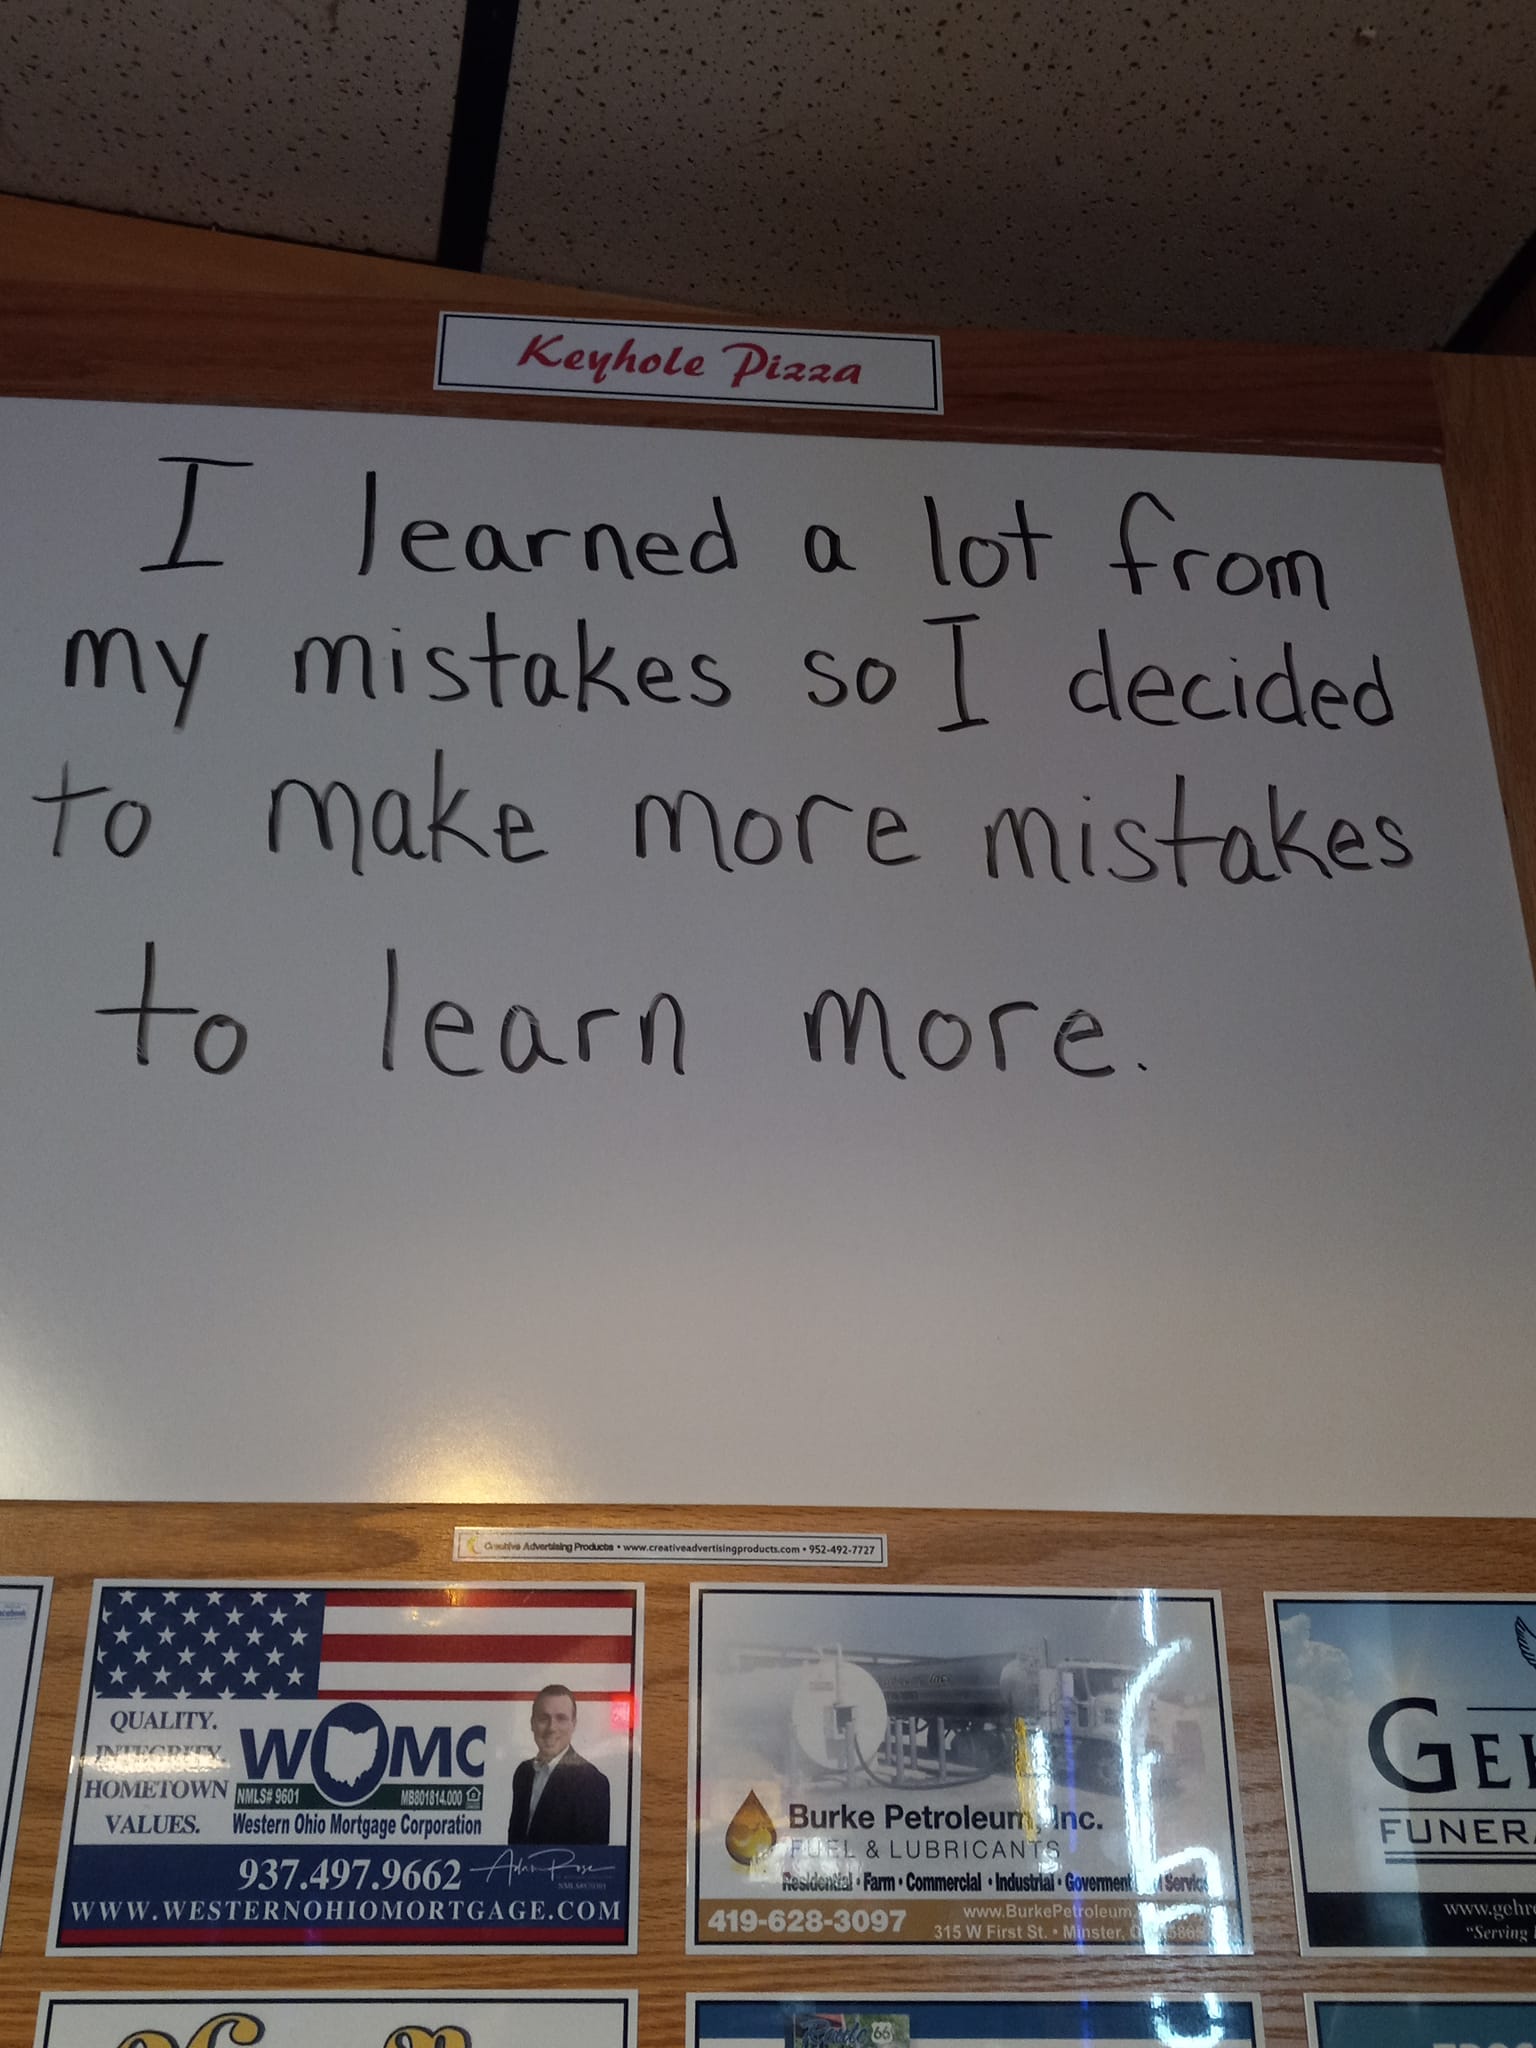 Keyhole Pizza
I learned a lot from
my mistakes so I decided
to make more mistakes
to learn more.
Creative Advertising Products • www.creativeadvertisingproducts.com • 952-492-7727
QUALITY.
INTEGRITY.
HOMETOWN
VALUES.
WOMC
NMLS# 9601 MB801814.000
Western Ohio Mortgage Corporation
937.497.9662 Adam Rose
WWW.WESTERNOHIOMORTGAGE.COM
Burke Petroleum, Inc.
FUEL & LUBRICANTS
Residential • Farm • Commercial • Industrial • Goverment
419-628-3097
www.BurkePetroleum.
315 W First St. • Minster,
"Serving
Route 66